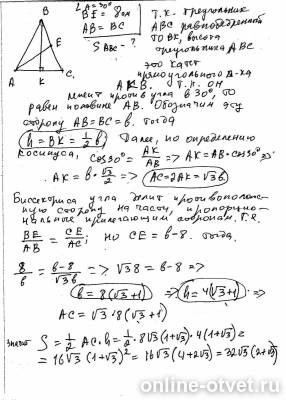 B
E
A K C
∠A=30°
BE = 8 см
AB = BC
S ABC - ?
Т.К. треугольник
ABC равнобедренный
то BK, высота
треугольника ABC.
это катет
прямоугольного Δ-ка
AKB. Т.К. он
лежит против угла в 30° то
равен половине AB. Обозначим эту
сторону AB=BC=b. Тогда
h=BK=½b. Далее, по определению
косинуса, cos30°=AK/AB => AK=AB·cos30° =>
AK=b·√3/2 => AC=2AK=√3b
Биссектриса угла делит противополож-
ную сторону на части, пропорцио-
нальные прилегающим сторонам. Т.е.
BE/AB = CE/AC; но CE=b-8. Тогда
8/b = b-8/√3b => √3 8 = b-8 =>
b=8(√3+1) => h=4(√3+1) =>
AC=√3·8(√3+1)
значит S=½AC·h=½·8√3(1+√3)·4(1+√3)=
=16√3(1+√3)²=16√3(4+2√3)=32√3(2+√3)
online-otvet.ru